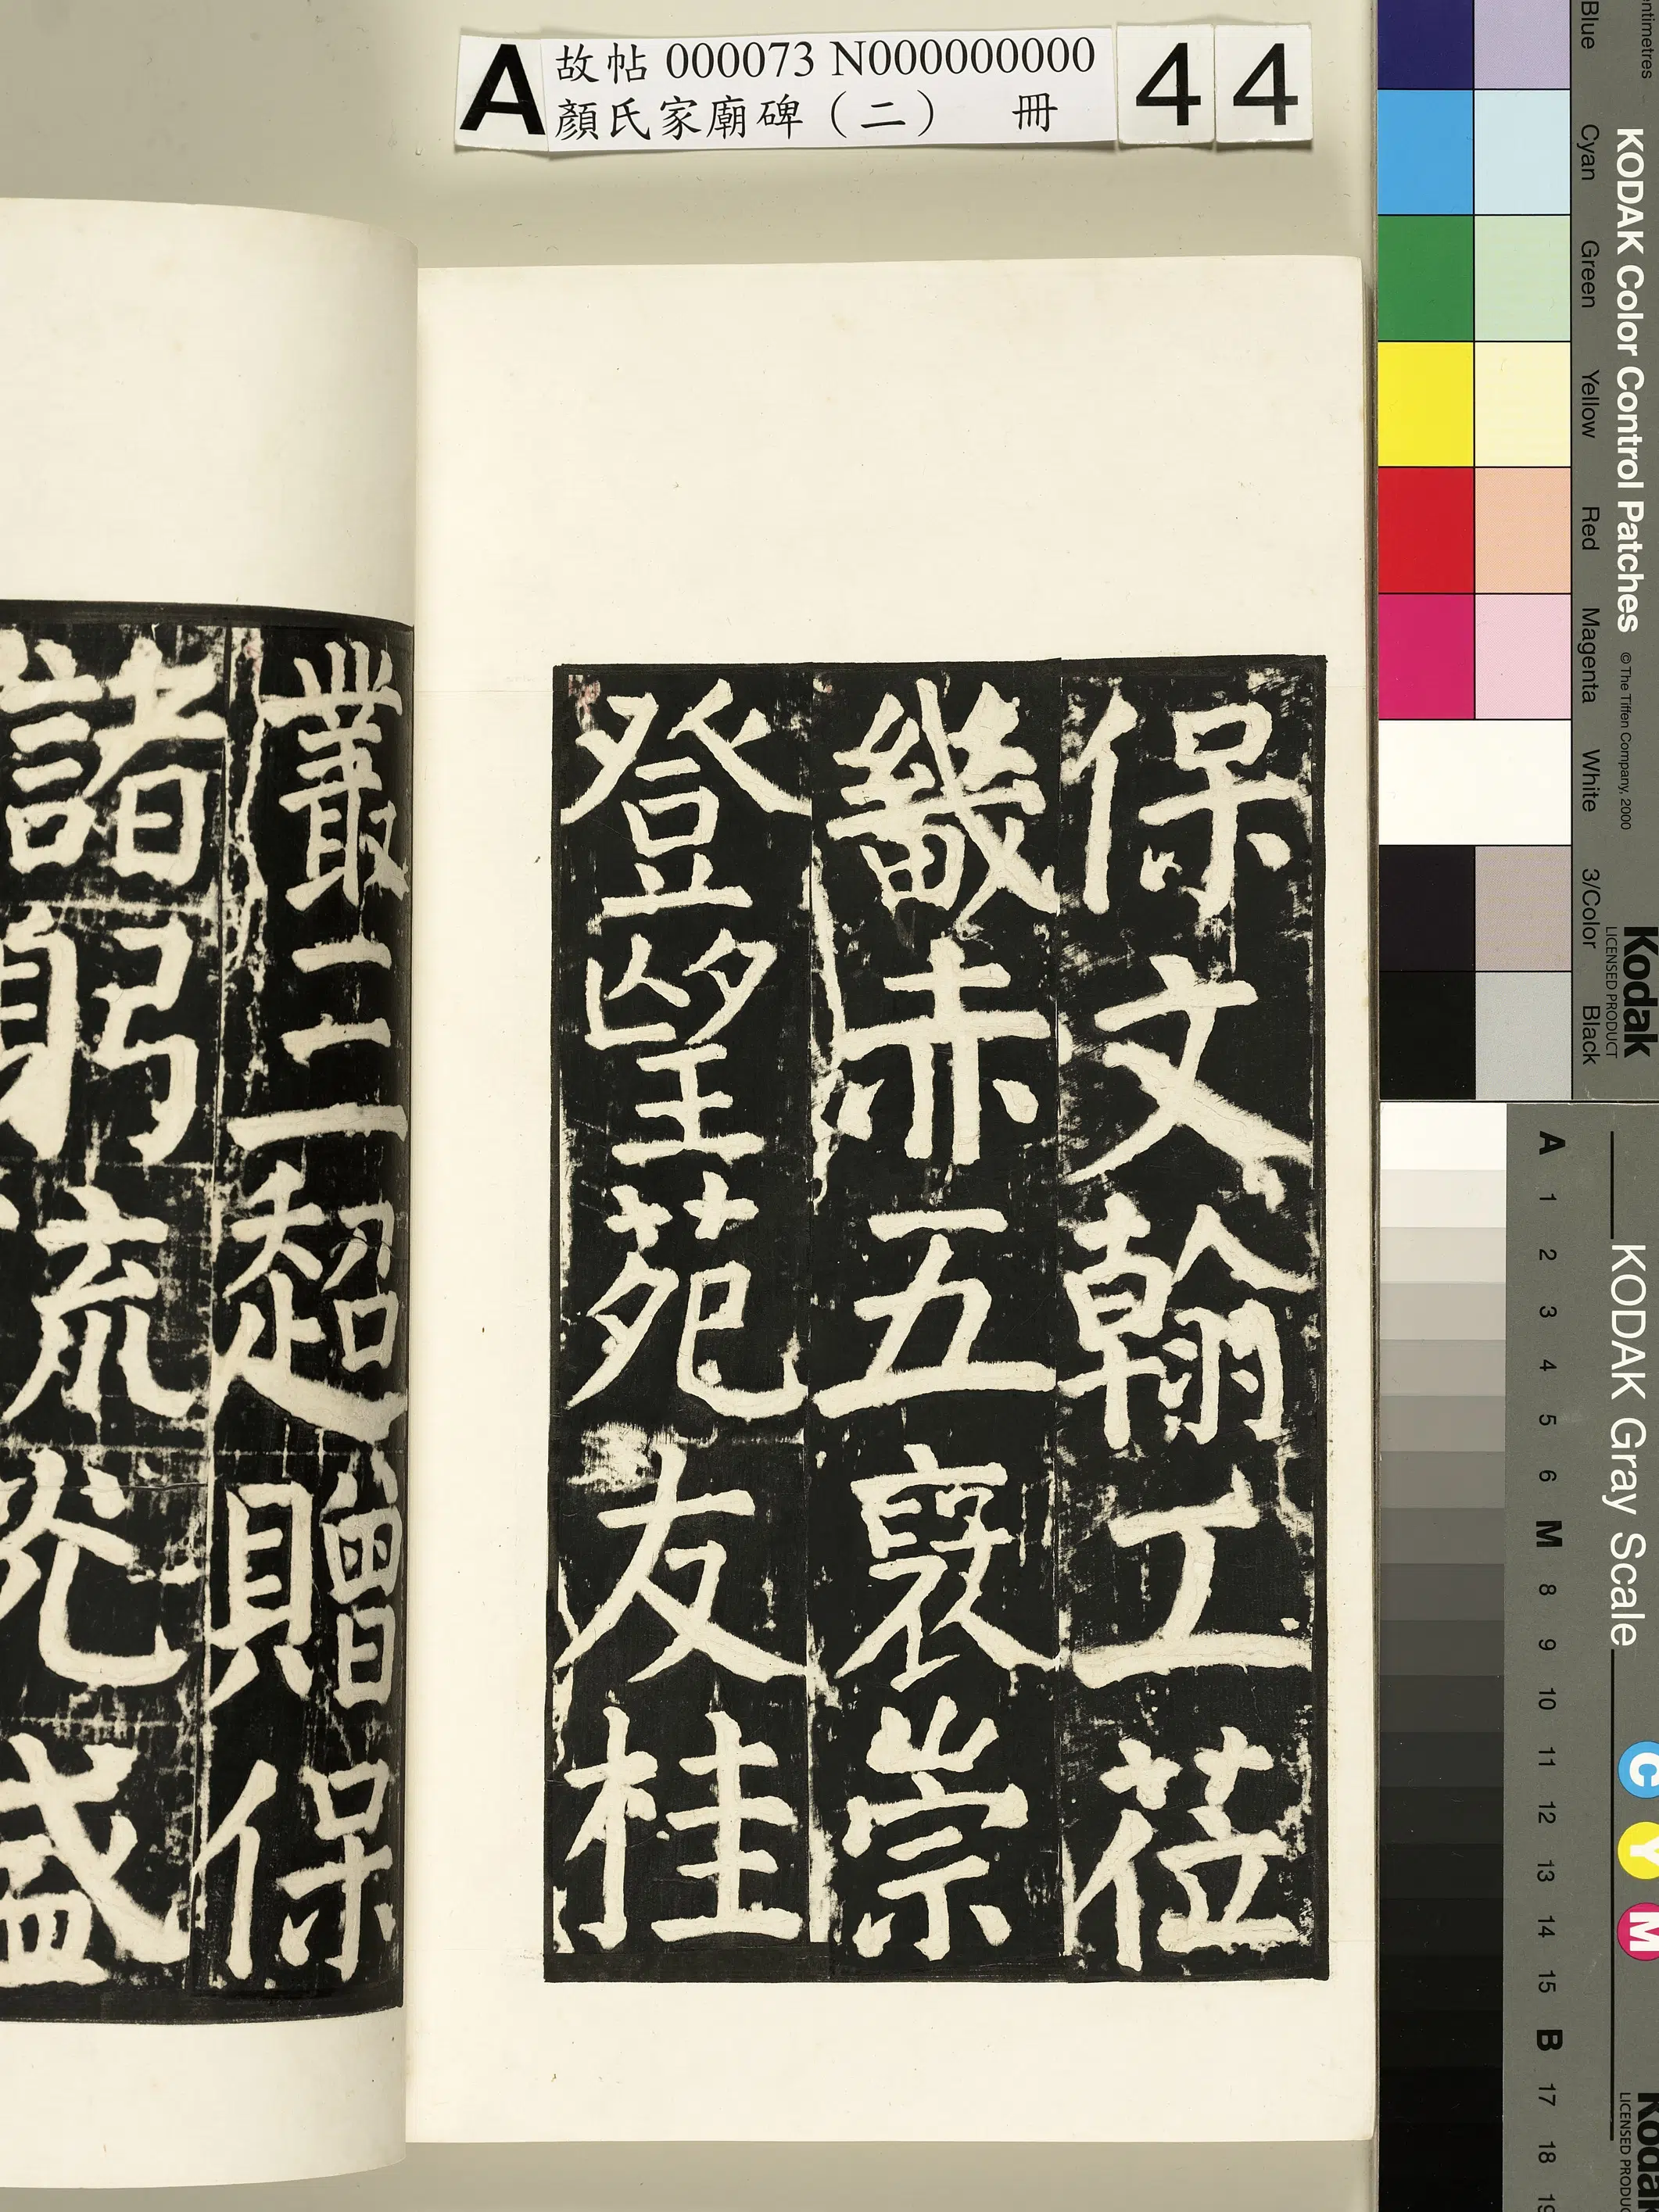 A 故帖 000073 N000000000 44
顏氏家廟碑（二） 冊
保文翰工莅
畿赤五襲崇
登望苑友桂
叢二三超贈保
諸躬流光盛
KODAK Color Control Patches
©The Tiffen Company, 2000
Kodak
LICENSED PRODUCT
Blue Cyan Green Yellow Red Magenta White 3/Color Black
KODAK Gray Scale
C Y M
Kodak
LICENSED PRODUCT
A 1 2 3 4 5 6 M 8 9 10 11 12 13 14 15 B 17 18 19